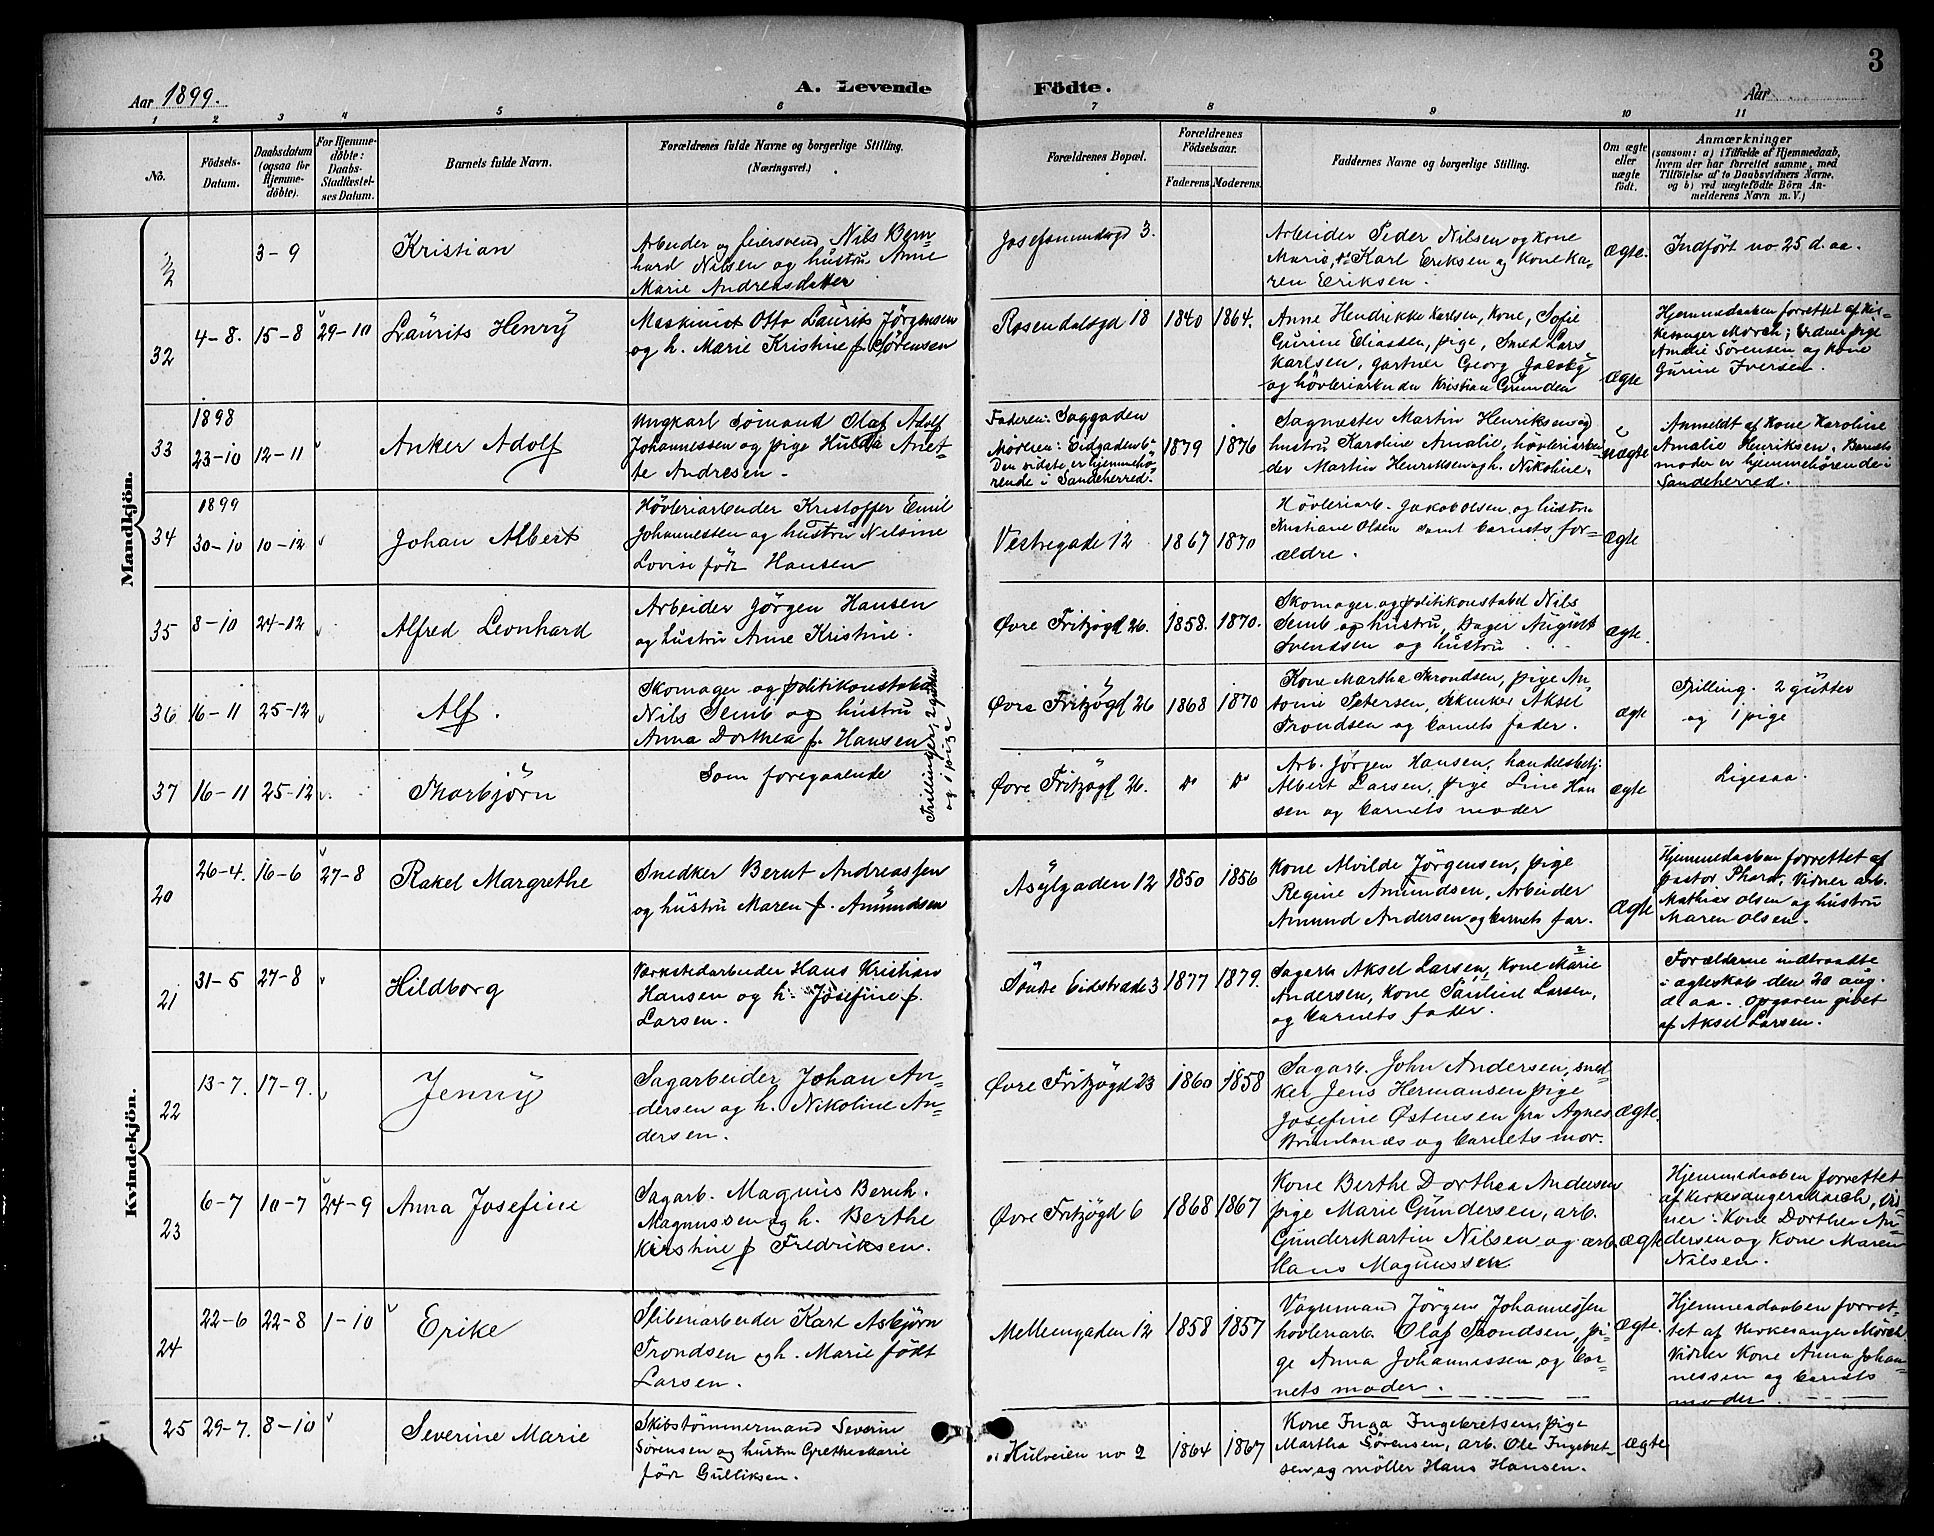 3
Aar 1899.
A. Levende
Födte.
Aar
1 2 3 4 5 6 7 8 9 10 11
No.
Födsels-
Datum.
Daabsdatum
(ogsaa for
Hjemme-
döbte).
For Hjemme-
döbte:
Daabs-
Stadfæstel-
ses Datum.
Barnets fulde Navn.
Forældrenes fulde Navne og borgerlige Stilling.
(Næringsvei.)
Forældrenes Bopæl.
Forældrenes
Födselsaar.
Faderens. Moderens.
Faddernes Navne og borgerlige Stilling.
Om ægte
eller
uægte
födt.
Anmærkninger
(saasom: a) i Tilfælde af Hjemmedaab,
hvem der har forrettet samme, med
Tilföielse af to Daabsvidners Navne.
og b) ved uægtefödte Börn An-
melderens Navn m.V.)
Mandkjön.
3-9
Kristian
Arbeider og feiersvend Nils Bern-
hard Nilsen og hustru Anne
Marie Andreasdatter
3.
Arbeider Peder Nilsen og kone
Maria, Karl Eriksen og Kone Ka-
ren Eriksen.
ægte.
Indført no 25 d. aa.
32
4-8. 15-8 29-10
Laurits Henry
Maskinist Otto Laurits Jörgensen
og h. Marie Kristine f. Sörensen
Rosendalsgd 18
1840 1864.
Anne Hendrikke Karlsen, kone, Sofie
Gurine Eliassen, pige, Smed Lars
Karlsen, gartner Georg Jacoby
og hövleriarbeider Kristian Grunden
ægte
Hjemmedaaben forrettet af Kir-
kesanger Mörch; Vidner pige
Amalie Sörensen og Kone
Gurine Iversen.
33
1898
23-10 12-11
Anker Adolf
Ungkarl Sömand Olaf Adolf
Johannessen og pige Hulda Anet-
te Andresen.-
Faderen: Saggaden
Moderen: Eidgaden 6
Den sidste er hjemmehö-
rende i Sandeherred.
1879 1876
Sagmester Martin Henriksen og
hustru Karoline Amalie, hövleriarbei-
der Martin Henriksen og h. Nikoline.
uægte
Anmeldt af Kone Karoline
Amalie Henriksen. Barnets
moder er hjemmehörende i
Sandeherred.
34
1899
30-10 10-12
Johan Albert
Hövleriarbeider Kristoffer Emil
Johannessen og hustru Nilsine
Lovise född Hansen
Vestregade 12
1867 1870
Hövleriarb. Jakob Olsen og hustru
Kristiane Olsen samt barnets for-
ældre.
ægte
35
8-10 24-12
Alfred Leonhard
Arbeider Jörgen Hansen
og hustru Anne Kristine.
Øvre Fritzøgd 26.
1858. 1870.
Skomager og politikonstabel Nils
Semb og hustru, Bager August
Svendsen og hustru
ægte.
36
16-11 25-12
Alf.
Skomager og politikonstabel
Nils Semb og hustru
Anna Dorthea f. Hansen
Trillinger, 2 gutter
og 1 pige
Øvre Fritzøgd 26
1868 1870
Kone Martha Trondsen, pige An-
tonie Petersen, Aksel
Trondsen og barnets fader.
ægte
Trilling. 2 gutter
og 1 pige
37
16-11 25-12
Thorbjörn
Som foregaaende
Øvre Fritzøgd 26.
Arb. Jörgen Hansen, handelsbetj.
Albert Larsen, pige Line Han
sen og barnets moder
ægte
Ligesaa.
Kvindekjön.
20
26-4. 16-6 27-8
Rakel Margrethe
Snedker Bernt Andreassen
og hustru Maren f. Amundsen
Asylgaden 12
1850 1856
Kone Alvilde Jörgensen, pige
Regine Amundsen, Arbeider
Amund Andersen og barnets far.
Ægte
Hjemmedaaben forrettet af
pastor Vidner arb.
Mathias Olsen og hustru
Maren Olsen.
21
31-5 27-8
Hildborg
Værkstedarbeider Hans Kristian
Hansen og h. Josefine f.
Larsen.
Söndre Eidstræde 3
1877 1879.
Sagarb. Aksel Larsen, Kone Marie
Andersen, Kone Larsen,
og barnets fader.
Forældrene indtraadte
i ægteskab den 20 aug.
d. aa. Opgaven givet
af Aksel Larsen.
22
13-7. 17-9.
Jenny
Sagarbeider Johan An-
dersen og h. Nikoline An-
dersen.
Øvre Fritzøgd 23
1860 1858
Sagarb. John Andersen, sned-
ker Jens Hermansen, pige
Josefine Østensen fra Agnes
Brunlanæs og barnets mor.
ægte.
23
6-7 10-7 24-9
Anna Josefine
Sagarb. Magnus Bernh.
Magnussen og h. Berthe
Kirstine f. Fredriksen.
Øvre Fritzøgd 6
1868 1867
Kone Berthe Dorthea Andersen
pige Marie Gundersen, arb.
Gunder Martin Nilsen og arb.
Hans Magnussen
ægte
Hjemmedaaben forrettet
af Kirkesanger Mørch, vid-
ner: Kone Dorthea An-
dersen og Kone Maren
Nilsen.
24
22-6 22-8 1-10
Erike
Sliberiarbeider Karl Asbjörn
Trondsen og h. Marie födt
Larsen.
Mellemgaden 12
1858 1857
Vognmand Jörgen Johannessen
hövleriarb. Olaf Trondsen, pi-
ge Anna Johannessen og bar-
nets moder.
ægte.
Hjemmedaaben forret-
tet af Kirkesanger Mörch.
Vidner Kone Anna Johan-
nessen og barnets
moder.
25
29-7. 8-10
Severine Marie
Skibstömmermand Severin
Sörensen og hustru Grethe Marie
född Gulliksen.
Kulveien no 2
1864 1867
Kone Inga Ingebretsen, pige
Martha Sörensen, arb. Ole Ingebret-
sen og möller Hans Hansen.
ægte